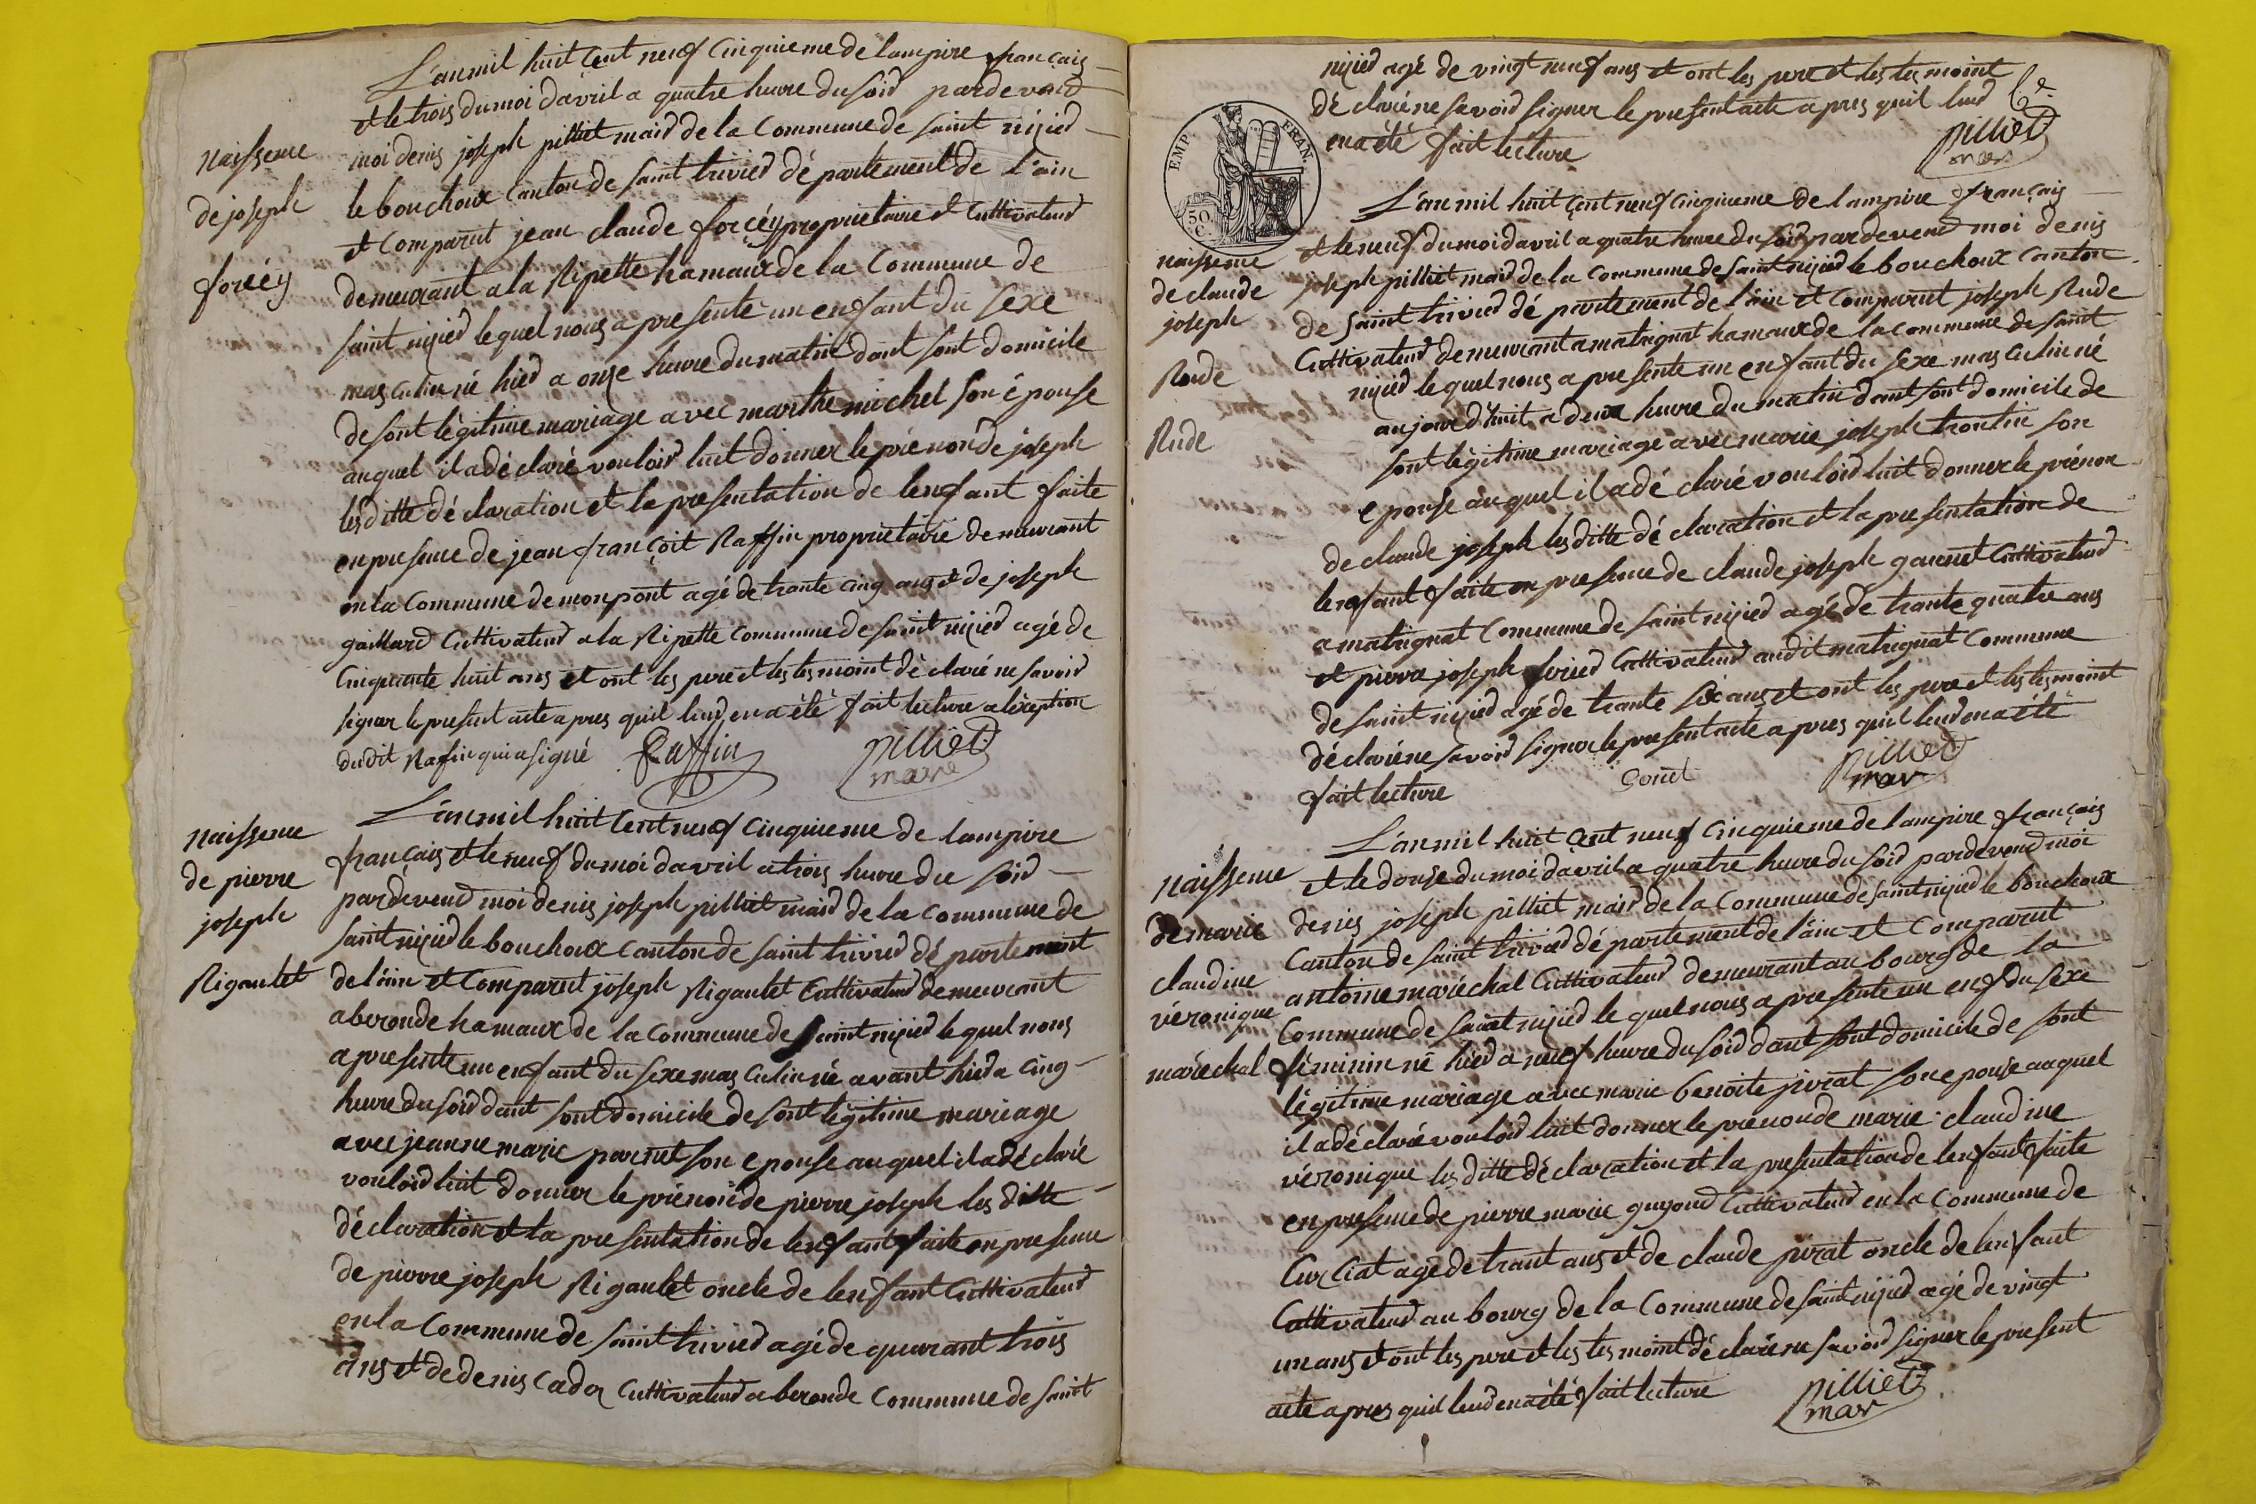 L'an mil huit Cent neuf Cinquieme de lampire français
et le trois du moi davril a quatre heure du soir pardevend
moi denis joseph pilliet maid de la Commune de saint nizied
le bouchoux Canton de saint trivied département de l'ain
et Comparut jean claude forcéy proprietaire et Cultivateud
demeurant a la Ripette hamaux de la Commune de
saint nizied lequel nous a presente un enfant du sexe
masculin né hied a onze heure du matin dant sont domicile
de sont légitime mariage avec marthe michel son épouse
auquel il a déclaré vouloid luit donner le prénon de joseph
lesditte déclaration et la presentation de lenfant faite
en presence de jean françoit Raffin proprietaire demeurant
en la Commune de monpont agé de trante cinq ans et de joseph
gaillard Cultivateud a la Ripette Commune de saint nizied agé de
Cinquante huit ans et ont les pere et les tesmoint déclaré ne savoid
signer le present acte apres quil leud en a été fait lecture a léxeption
dudit Raffin qui a signé Raffin pilliet
mare
naissence
de joseph
forcéy
L'an mil huit Cent neuf Cinquieme de lampire
français et le neuf du moi davril a trois heure du soid
pardevend moi denis joseph pilliet maid de la Commune de
saint nizied le bouchoux Canton de saint trivied département
de l'ain et Comparut joseph Rigaulet Cultivateud demeurant
a beronde hamaux de la Commune de saint nizied lequel nous
a presente un enfant du sexe masculin né avant hied a cinq
heure du soid dant sont domicile de sont légitime mariage
avec jeanne marie pacnet son epouse auquel il a déclaré
vouloid luit donner le prénon de pierre joseph les ditte
déclaration et la presentation de lenfant faite en presence
de pierre joseph Rigaulet oncle de lenfant Cultivateud
en la Commune de saint trivied agé de quarant trois
ans et de denis Cadoz Cultivateud a beronde Commune de saint
naissence
de pierre
joseph
Rigaulet
nizied agé de vingt neuf ans et ont les pere et les tesmoint
déclaré ne savoid signer le present acte apres quil leud
en a été fait lecture pilliet
mar
EMP. FRAN.
50
C.
L'an mil huit Cent neuf Cinquieme de lampire français
et le neuf du moi davril a quatre heure du soid pardevend moi denis
joseph pilliet maid de la Commune de saint nizied le bouchoux Canton
de saint trivied département de l'ain et Comparut joseph Rude
Cultivateud demeurant a matrignat hamaux de la Commune de saint
nizied lequel nous a presente un enfant du sexe masculin né
aujourdhuit a deux heure du matin dant sont domicile de
sont légitime mariage avec marie joseph trontin son
epouse auquel il a déclaré vouloid luit donner le prénon
de claude joseph lesditte déclaration et la presentation de
lenfant faite en presence de claude joseph gaunet Cultivateud
a matrignat Commune de saint nizied agé de trante quatre ans
et pierre joseph Cultivateud audit matrignat Commune
de saint nizied agé de trante six ans et ont les pere et les tesmoint
déclaré ne savoid signer le present acte apres quil leud en a été
fait lecture gonet pilliet
mar
naissence
de claude
joseph
Roude
Rude
L'an mil huit Cent neuf Cinquieme de lampire français
et le douse du moi davril a quatre heure du soid pardevend moi
denis joseph pilliet maid de la Commune de saint nizied le bouchoux
Canton de saint trivied département de l'ain et Comparut
antoine maréchal Cultivateud demeurant au bourg de la
Commune de saint nizied lequel nous a presente un enf du sexe
féminin né hied a neuf heure du soid dant sont domicile de sont
légitime mariage avec marie benoite pirat son epouse auquel
il a déclaré vouloid luit donner le prenon de marie claudine
véronique les ditte déclaration et la presentation de lenfant faite
en presence de pierre marie guyoud Cultivateud en la Commune de
Curciat agé de trant ans et de claude pirat oncle de lenfant
Cultivateud au bourg de la Commune de saint nizied agé de vingt
un ans et ont les pere et les tesmoint déclaré ne savoid signer le present
acte apres quil leud en a été fait lecture pilliet
mar
naissence
de marie
claudine
véronique
maréchal